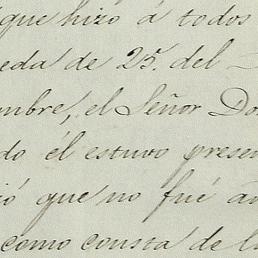 que hizo á todos
eda de 25. del
mbre, el Señor Do
do él estuvo presen
ió que no fué a
como consta de l